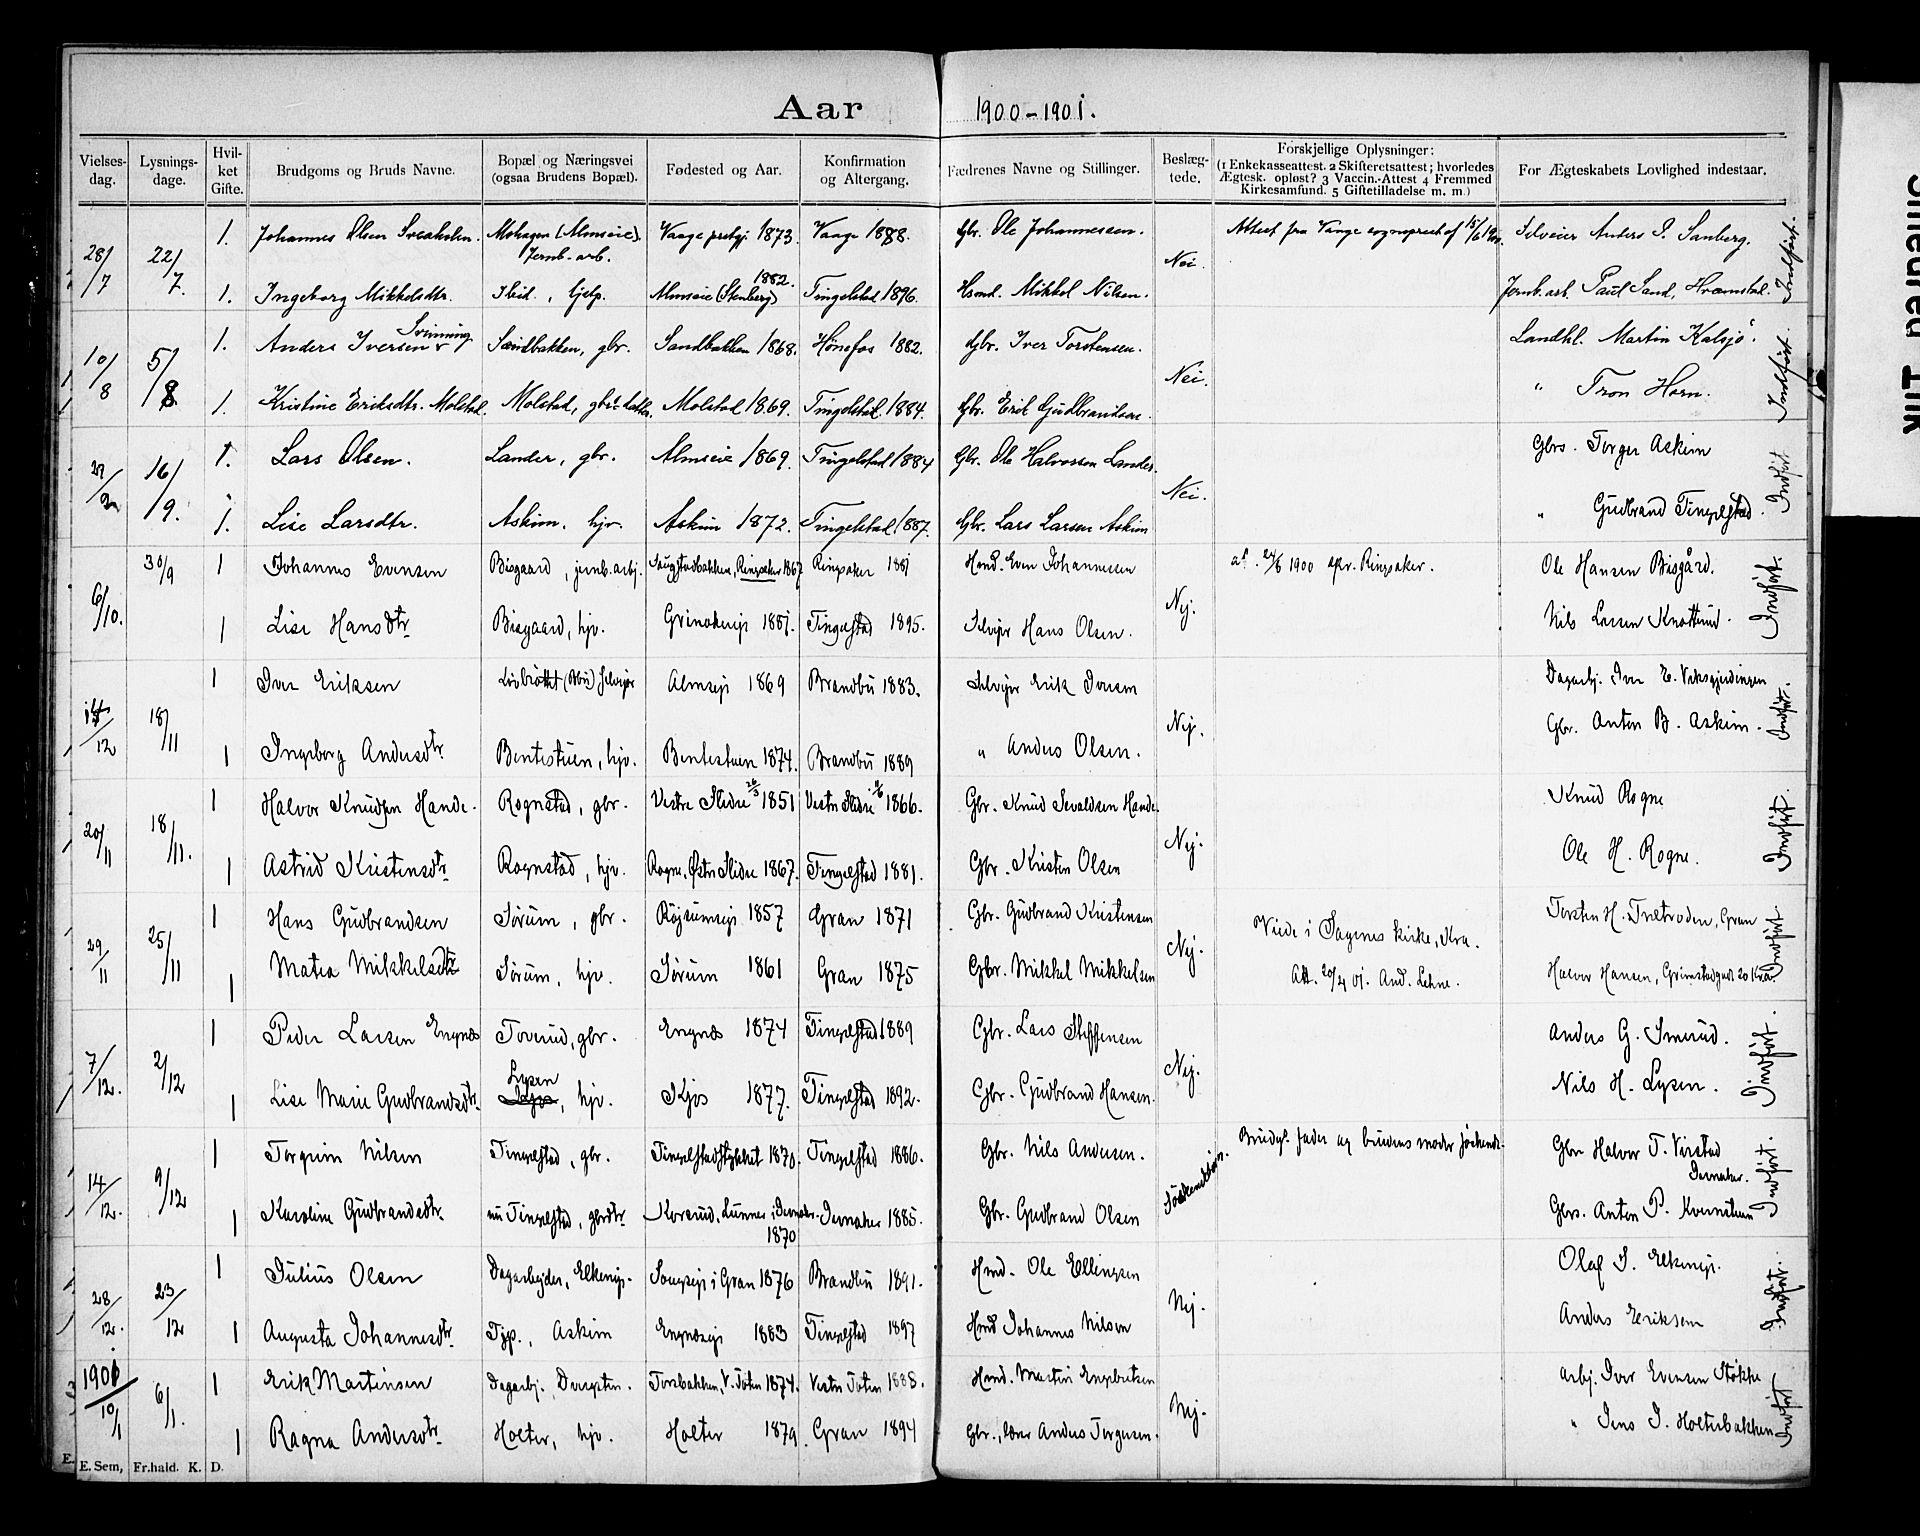 Aar 1900-1901.
Vielses-dag. Lysnings-dage. Hvil-ket Gifte. Brudgoms og Bruds Navne. Bopæl og Næringsvei (ogsaa Brudens Bopæl). Fødested og Aar. Konfirmation og Altergang. Fædrenes Navne og Stillinger. Beslæg-tede. Forskjellige Oplysninger: (1 Enkekasseattest. 2 Skifteretsattest; hvorledes Ægtesk. opløst? 3 Vaccin.-Attest 4 Fremmed Kirkesamfund. 5 Giftetilladelse m. m.) For Ægteskabets Lovlighed indestaar.
28/7 22/7 1. Johannes Olsen Mohagen (Almseie). Jernb. arb. Vaage prstgj. 1873. Vaage 1888. Gbr. Ole Johannessen. Nei. Attest fra Vaage sognepræst af 15/6 1900. Selveier Anders P. Sanberg. Indført.
1. Ingeborg Mikkelsdtr. Ibid., hjelp. Almseie (Stenberg) 1882. Tingelstad 1896. Hsmd. Mikkel Nilsen. Jernb. arb. Paul Sand, Hvamstad.
10/8 5/8 1. Anders Iversen Svinning Sandbakken, gbr. Sandbakken 1868. Hønefos 1882. Gbr. Iver Torstensen. Nei. Landhl. Martin Kalsjø. Indført.
1. Kristine Eriksdtr. Molstad. Molstad, gbr. datter. Molstad 1869. Tingelstad 1884. Gbr. Erik Gudbrandsen. " Tron Horn.
16/9 1. Lars Olsen. Lander, gbr. Almseie 1869. Tingelstad 1884 Gbr. Ole Halvorsen Lander. Nei. Gbrs. Torger Askim Indført
1. Lise Larsdtr. Askim, hjv. Askim 1872. Tingelstad 1887. Gbr. Lars Larsen Askim " Gudbrand Tingelstad.
6/10. 30/9 1 Johannes Evensen Bisgaard, jernb. arbj. Ringsaker 1867 Ringsaker 1881 Hsmd. Even Johannessen Nej. af 24/6 1900 spr. Ringsaker. Ole Hansen Bisgård. Indført.
1 Lise Hansdtr Bisgaard, hjv. Grinakerejr 1881. Tingelstad 1895. Selvejer Hans Olsen. Nils Larsen Knattrud.
12 18/11 1 Iver Eriksen Selvejer Almsejr 1869 Brandbu 1883. Selvejer Erik Iversen Nej. Dagarbj. Iver E. Veksgjerdingen Indført.
1 Ingeborg Andersdtr. Bentestuen, hjv. Bentestuen 1874. Brandbu 1889 " Anders Olsen. Gbr. Anton B. Askim.
20/11 18/11. 1 Halvor Knudsen Hande. Rognstad, gbr. Vestre Slidre 26/3 1851 Vestre Slidre 1866. Gbr. Knud Sevaldsen Hande. Nej. Knud Rogne Indført.
1 Astrid Kristensdtr. Rognstad, hjv. Rogne, Østre Slidre 1867. Tingelstad 1881. Gbr. Kristen Olsen Ole H. Rogne.
29/11 25/11 1 Hans Gudbrandsen Sørum, gbr. Røjsumsejr 1857 Gran 1871 Gbr. Gudbrand Kristensen Nej. Viede i Sagenes kirke, Kra. Torsten H. Gran Indført.
1 Matea Mikkelsdtr Sørum, hjv. Sørum 1861 Gran 1875 Gbr. Mikkel Mikkelsen Att. 20/4 01. And. Lehne. Halvor Hansen, Grimstadgad. 20 Kra.
7/12. 2/12 1 Peder Larsen Engnæs Toverud, gbr. Engnæs 1874 Tingelstad 1889 Gbr. Lars Steffensen Nej. Anders G. Smerud. Indført.
1 Lise Marie Gudbrandsdtr. Lysen, hjv. Kjos 1877. Tingelstad 1892. Gbr. Gudbrand Hansen. Nils H. Lysen.
14/12. 9/12 1 Torgrim Nilsen Tingelstad, gbr. Tingelstadstykket 1870. Tingelstad 1886. Gbr. Nils Andersen. Søskendebørn. Brudg. fader og brudens moder søskende. Gbr Halvor T. Virstad Jevnaker. Indført.
1 Karoline Gudbrandsdtr. nu Tingelstad, gbrdtr. Korsrud, Lunner i Jevnaker. 1870 Jevnaker 1885. Gbr. Gudbrand Olsen Gbrs. Anton P. Kvernstuen
28/12. 23/12 1 Julius Olsen Dagarbejder, Elkenejr. i Gran 1876 Brandbu 1891. Hsmd. Ole Ellingsen Nej. Olaf I. Elkenejr. Indført.
1 Augusta Johannesdtr. Tjp., Askim Engnæsejr 1883 Tingelstad 1897 Hsmd Johannes Nilsen Anders Eriksen
1901 10/1 6/1. 1 Erik Martinsen Dagarbj., Dvergsten. Torsbakken, V. Toten 1874. Vestre Toten 1888. Hsmd. Martin Engebretsen Nej. Arbj. Iver Evensen Støkke Indført
1 Ragna Andersdtr Holter, hjv. Holter 1879. Gran 1894 Gbr., lærer Anders Torgersen. " Jens J. Holterbakken
E. Sem, Fr.hald. K. D.